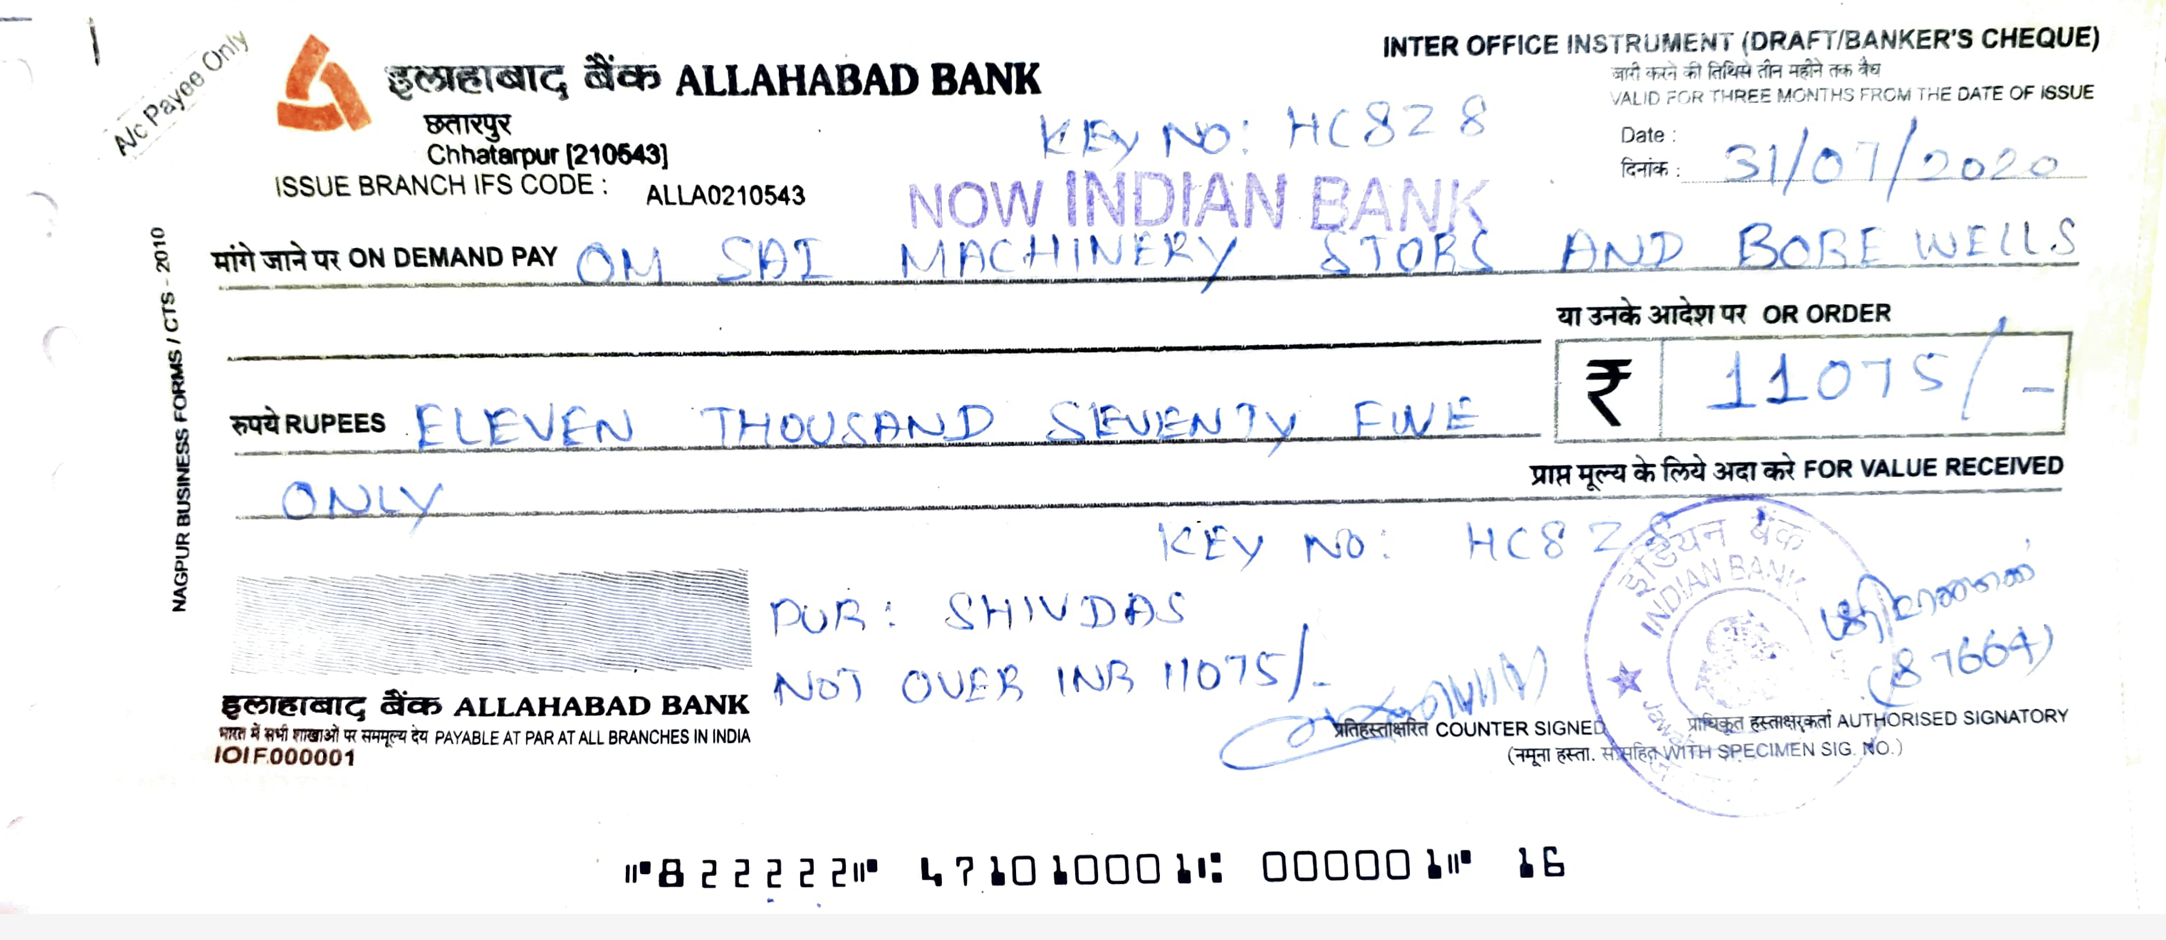 A/c Payee Only
इलाहाबाद बैंक ALLAHABAD BANK
छतारपुर
Chhatarpur [210543]
ISSUE BRANCH IFS CODE : ALLA0210543
INTER OFFICE INSTRUMENT (DRAFT/BANKER'S CHEQUE)
जारी करने की तिथिसे तीन महीने तक वैध
VALID FOR THREE MONTHS FROM THE DATE OF ISSUE
KEY NO: HC828
Date :
दिनांक : 31/07/2020
NOW INDIAN BANK
मांगे जाने पर ON DEMAND PAY OM SAI MACHINERY STORS AND BORE WELLS
या उनके आदेश पर OR ORDER
₹ 11075/-
रुपये RUPEES ELEVEN THOUSAND SEVENTY FIVE
ONLY
प्राप्त मूल्य के लिये अदा करे FOR VALUE RECEIVED
KEY NO: HC828
इंडियन बैंक
INDIAN BANK
PUR: SHIVDAS
NOT OVER INR 11075/-
(87664)
इलाहाबाद बैंक ALLAHABAD BANK
भारत में सभी शाखाओं पर सममूल्य देय PAYABLE AT PAR AT ALL BRANCHES IN INDIA
IOIF000001
प्रतिहस्ताक्षरित COUNTER SIGNED
प्राधिकृत हस्ताक्षरकर्ता AUTHORISED SIGNATORY
(नमूना हस्ता. सं सहित WITH SPECIMEN SIG. NO.)
NAGPUR BUSINESS FORMS / CTS - 2010
⑈822222⑈ 471010001⑆ 000001⑈ 16